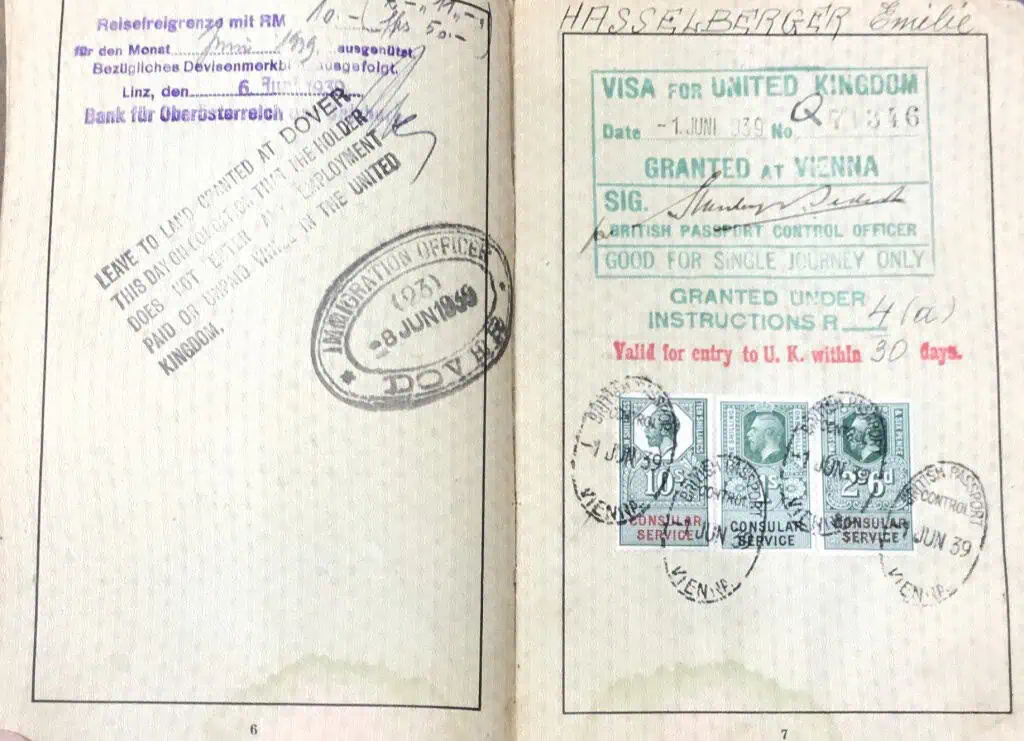 Reisefreigrenze mit RM 10.-
50.-
für den Monat Juni 1939 ausgenützt
Bezügliches Devisenmerkbl ausgefolgt.
Linz, den 6. Juni 1939
Bank für Oberösterreich
LEAVE TO LAND GRANTED AT DOVER
THIS DAY ON CONDITION THAT THE HOLDER
DOES NOT ENTER ANY EMPLOYMENT
PAID OR UNPAID WHILE IN THE UNITED
KINGDOM.
IMMIGRATION OFFICER
(23)
8 JUN 1939
DOVER
6
HASSELBERGER Emilie
VISA FOR UNITED KINGDOM
Date -1 JUNI 939 No. Q 346
GRANTED AT VIENNA
SIG.
BRITISH PASSPORT CONTROL OFFICER
GOOD FOR SINGLE JOURNEY ONLY
GRANTED UNDER
INSTRUCTIONS R 4(a)
Valid for entry to U. K. within 30 days.
BRITISH PASSPORT
CONTROL
-1 JUN 39
VIENNA
10s
CONSULAR
SERVICE
BRITISH PASSPORT
CONTROL
-1 JUN 39
VIENNA
1s
CONSULAR
SERVICE
BRITISH PASSPORT
CONTROL
-1 JUN 39
VIENNA
2s6d
CONSULAR
SERVICE
BRITISH PASSPORT
CONTROL
-1 JUN 39
VIENNA
7